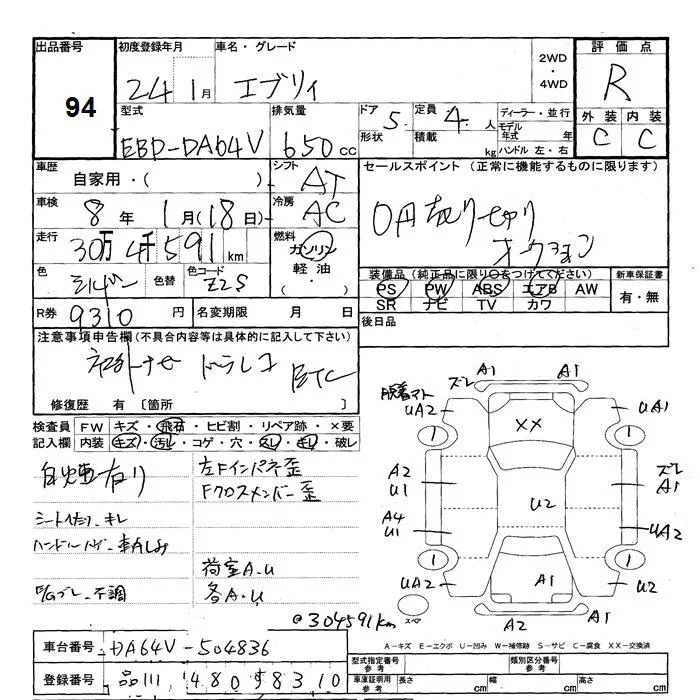 出品番号 初度登録年月 車名・グレード 2WD ・ 4WD 評価点
94 24 1月 エブリィ R
型式 排気量 ドア 5 定員 4 人 ディーラー・並行 外装 内装
EBD-DA64V 650 cc 形状 積載 kg モデル年式 年 ハンドル 左・右 C C
車歴 自家用・( ) シフト AT セールスポイント (正常に機能するものに限ります)
車検 8年 1月(18日) 冷房 AC
走行 30万4千591km 燃料 ガソリン 軽油 ( ・ )
色 シルバー 色替 色コード Z2S 装備品(純正品に限り○をつけてください) 新車保証書
PS PW ABS エアB AW 有・無
SR ナビ TV カワ
R券 9310 円 名変期限 月 日 後日品
注意事項申告欄(不具合内容等は具体的に記入して下さい)
ドラレコ ETC
修復歴 有 〔箇所 〕
検査員 FW キズ・飛石・ヒビ割・リペア跡・×要
記入欄 内装 キズ・汚レ・コゲ・穴・スレ・キレ・破レ
左Fインパネ歪
Fクロスメンバー歪
シート キレ
荷室A.U
不調 各A.U
@304591km
スレ A1 A1
UA2 UA1
1 1
XX
A2 スレ
U1 A1
U2
A4
U1 UA2
1 1
UA2 A1 U2
スペア A2 A1
車台番号 DA64V-504836
A-キズ E-エクボ U-凹み W-補修跡 S-サビ C-腐食 XX-交換済
登録番号 品川 480 8310
型式指定番号 参考 類別区分番号 参考
車庫証明用 参考 長さ cm 幅 cm 高さ cm